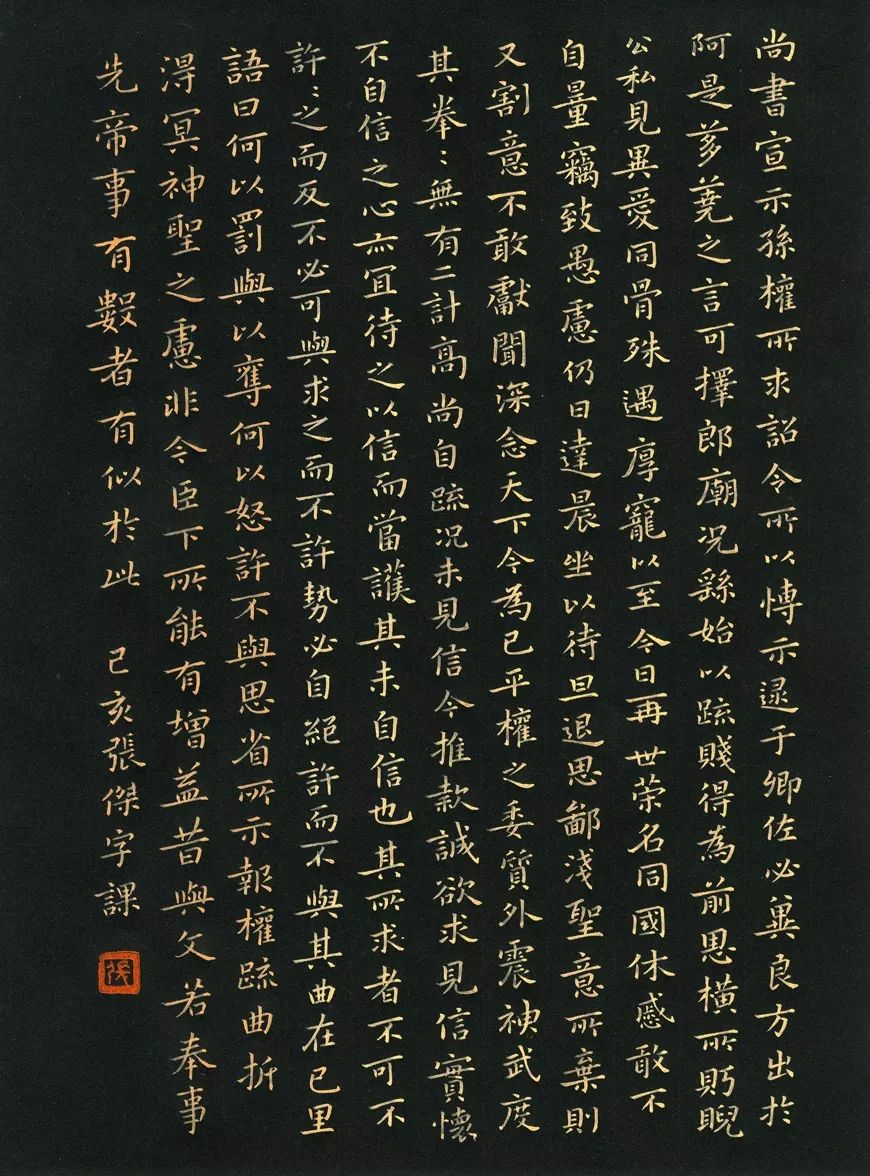 尚書宣示孫權所求詔令所以愽示逮于卿佐必冀良方出於
阿是芻蕘之言可擇郎廟况繇始以疏賤得為前思橫所眄睨
公私見異愛同骨殊遇厚寵以至今日再世荣名同國休慼敢不
自量竊致愚慮仍日達晨坐以待旦退思鄙淺聖意所棄則
又割意不敢獻聞深念天下今為已平權之委質外震神武度
其拳：無有二計高尚自疏况未見信今推款誠欲求見信實懷
不自信之心亦宜待之以信而當護其未自信也其所求者不可不
許：之而反不必可與求之而不許勢必自絕許而不與其曲在己里
語曰何以罰與以奪何以怒許不與思省所示報權疏曲折
得冥神聖之慮非今臣下所能有增益昔與文若奉事
先帝事有數者有似於此 己亥張傑字課